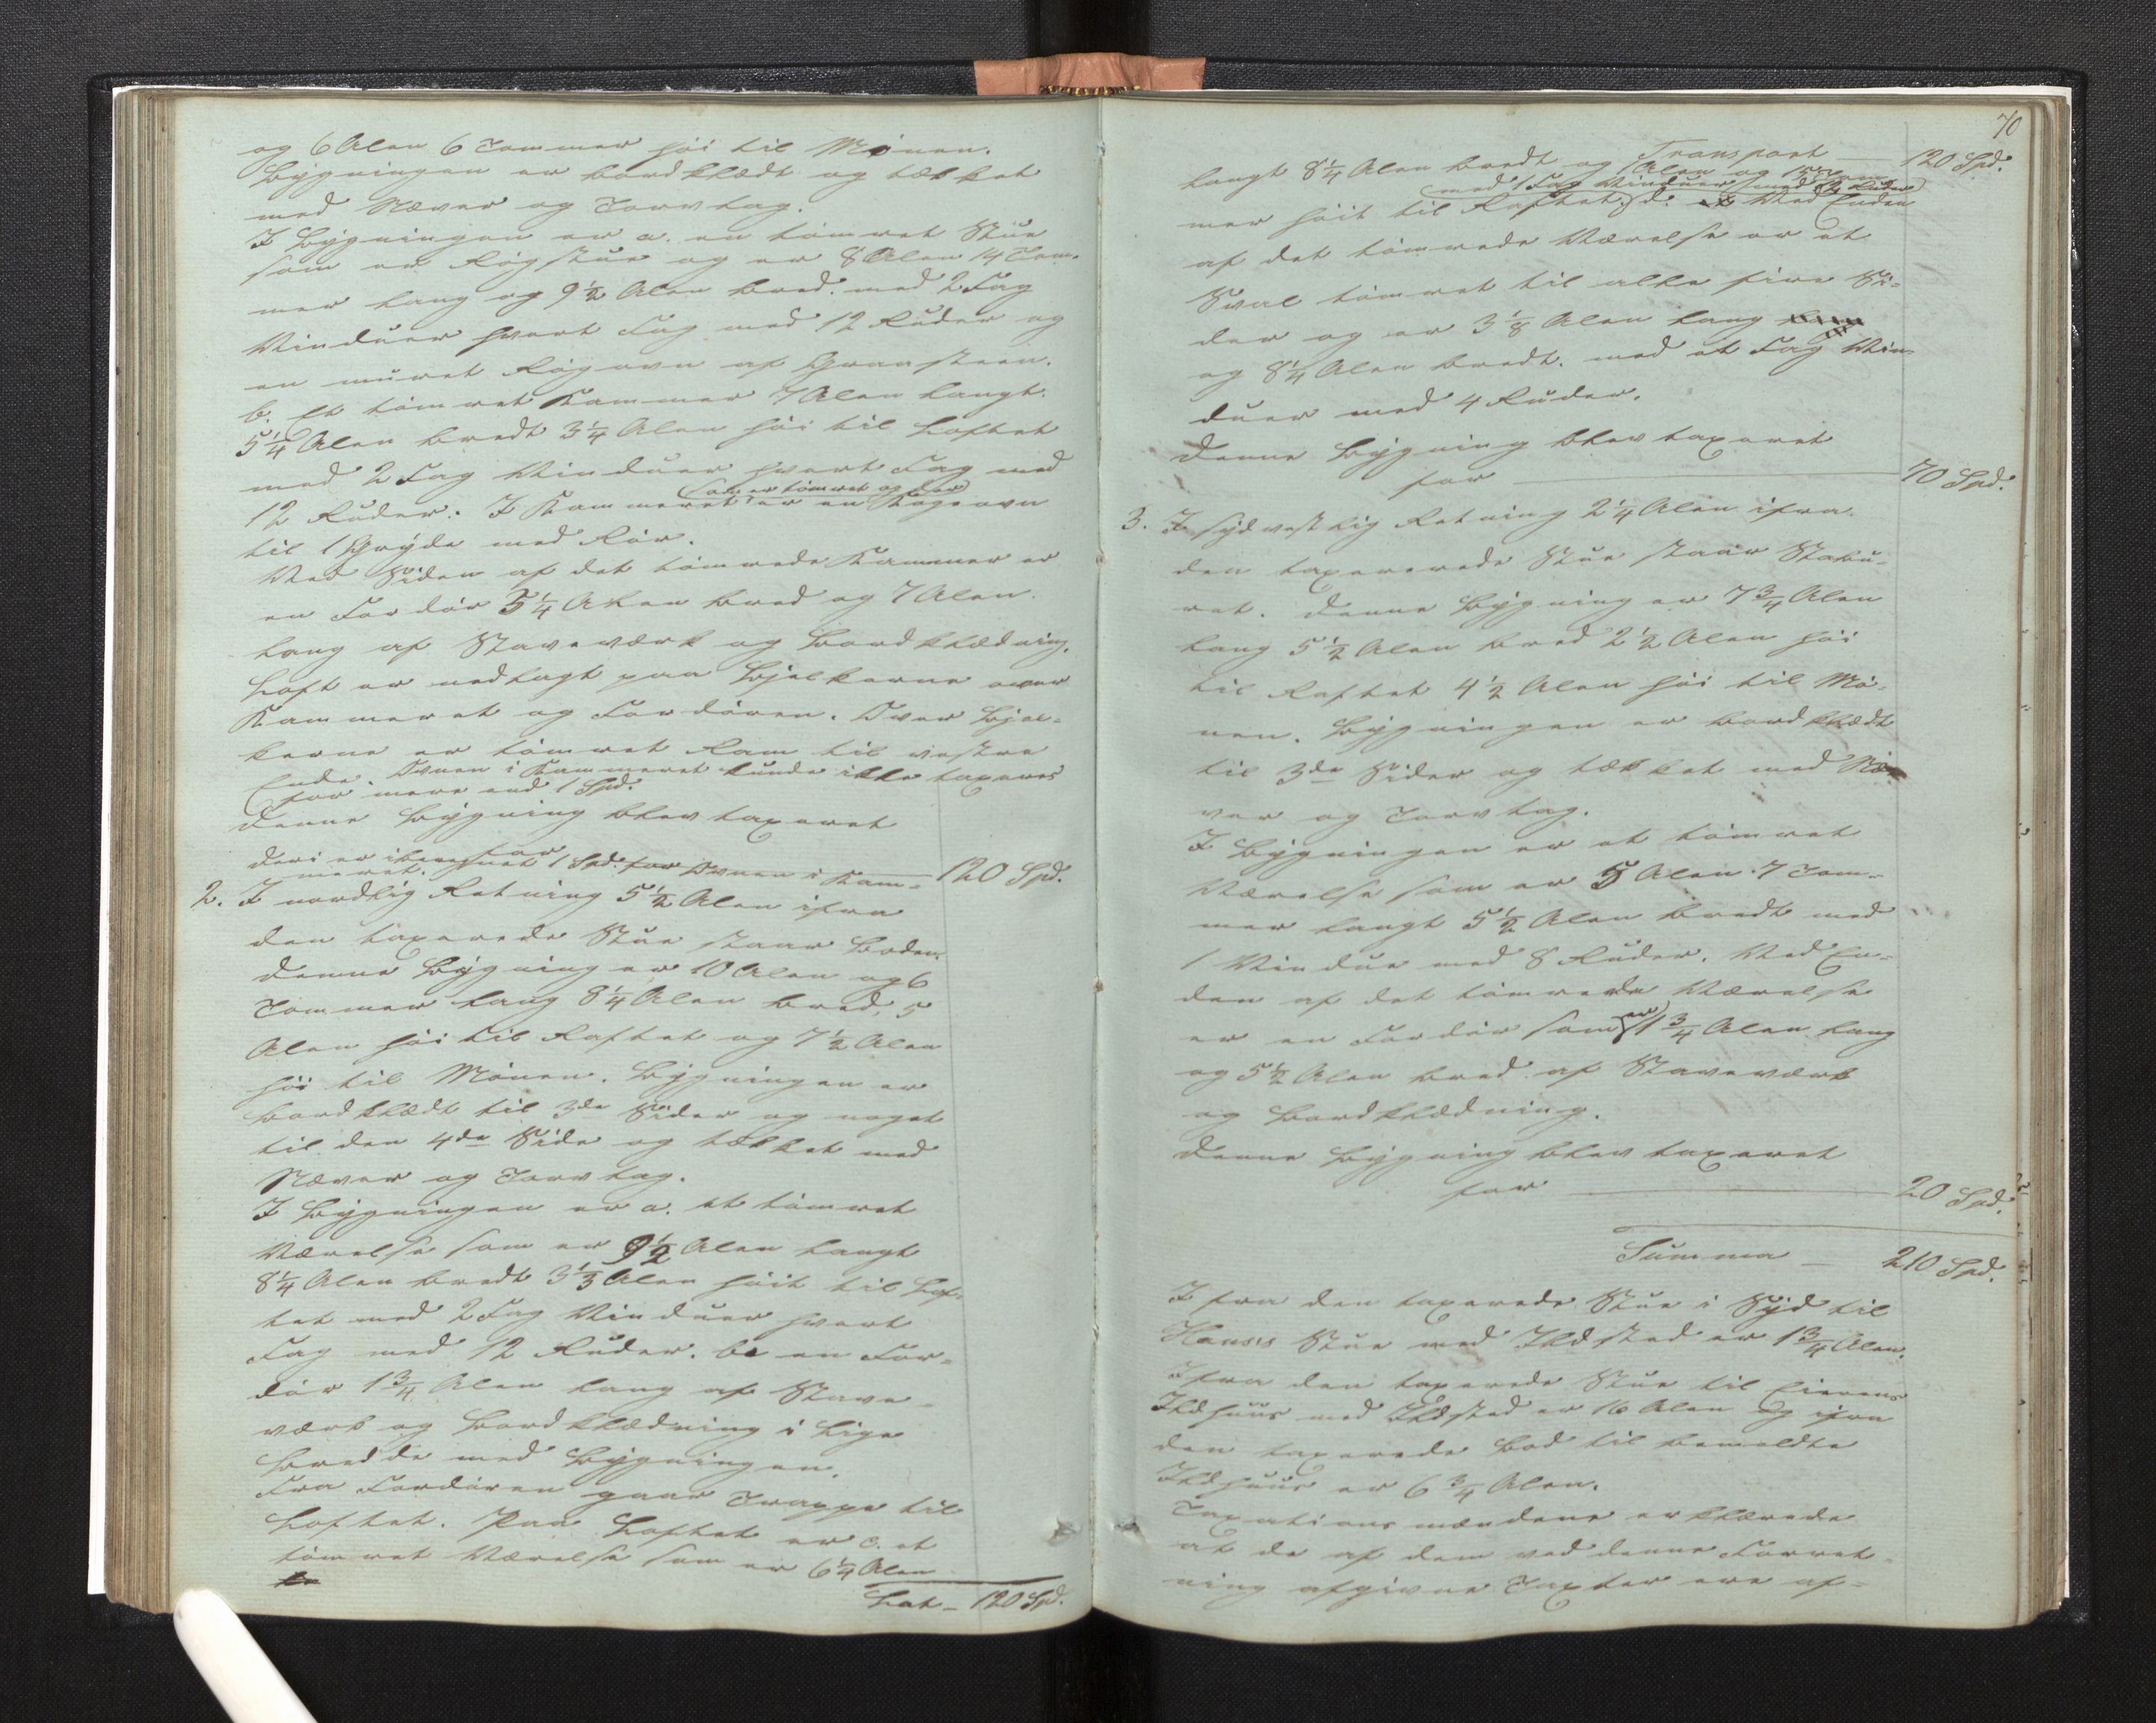 og 6 Alen 6 Tommer høi til Mønen.
Bygningen er bordklædt og tækket
med Næver og Torvtag.
I Bygningen er a. en tømret Stue
som er Røgstue og er 8 Alen 14 Tom-
mer lang og 9½ Alen bred. med 2 Fag
Vinduer hvert Fag med 12 Ruder og
en muret Røgovn af Graasteen.
b. Et tømret Kammer 7 Alen langt.
5¼ Alen bredt 3¼ Alen høi til Loftet
med 2 Fag Vinduer hvert Fag med
som er tømret og der
12 Ruder. I Kammeret er en Kogeovn
til 1 Gryde med Rør.
Ved Siden af det tømrede Kammer er
en Fordør 5¼ Alen bred og 7 Alen
lang af Staveværk og Bordklædning.
Loft er nedlagt paa Bjelkerne over
Kammeret og Fordøren. Over Bjel-
kerne er tømret Ram til vestre
Ende. Ovnen i Kammeret kunde ikke taxeres
for mere end 1 Spd.
Denne Bygning blev taxeret
for
deri er iberegnet 1 Spd. for Ovnen i Kam- 120 Spd.
meret.
2. I nordlig Retning 5½ Alen ifra
den taxerede Stue staar Boden.
Denne Bygning er 10 Alen og 6
Tommer lang 8¼ Alen bred, 5
Alen høi til Raftet og 7½ Alen
høi til Mønen. Bygningen er
bordklædt til 3de Sider og noget
til den 4de Side og tækket med
Næver og Torvtag.
I Bygningen er a. et tømret
Værelse som er 9½ Alen langt
8¼ Alen bredt 3⅓ Alen høit til Lof-
tet med 2 Fag Vinduer hvert
Fag med 12 Ruder. b. en For-
dør 1¾ Alen lang af Stave-
værk og Bordklædning i lige
Bredde med Bygningen.
Fra Fordøren gaar Trappe til
Loftet. Paa Loftet er c. et
tømret Værelse som er 6¼ Alen
Lat. 120 Spd.
70
Transport 120 Spd.
langt 8¼ Alen bredt og 1 Alen og 15 Tom-
med 1 Fag Vinduer med 4 Ruder
mer høit til Raftet. d. Ved Enden
af det tømrede Værelse er et
Sval tømret til alle fire Si-
der og er 3⅛ Alen lang
og 8¼ Alen bredt. med et Fag Vin-
duer med 4 Ruder.
Denne Bygning blev taxeret
for 70 Spd.
3. I sydvestlig Retning 2¼ Alen ifra
den taxererede Stue staar Stabu-
ret. Denne Bygning er 7¾ Alen
lang 5½ Alen bred 2½ Alen høi
til Raftet 4½ Alen høi til Mø-
nen. Bygningen er bordklædt
til 3de Sider og tækket med Næ-
ver og Torvtag.
I Bygningen er et tømret
Værelse som er 5 Alen 7 Tom-
mer langt 5½ Alen bredt med
1 Vindue med 8 Ruder. Ved En-
den af det tømrede Værelse
er en Fordør som er 1¾ Alen lang
og 5½ Alen bred af Staveværk
og Bordklædning.
Denne Bygning blev taxeret
for 20 Spd.
Summa 210 Spd.
Ifra den taxerede Stue i Syd til
Hanses Stue med Ildsted er 1¾ Alen.
Ifra den taxerede Stue til Eierens
Ildhuus med Ildsted er 16 Alen og ifra
den taxerede Bod til bemeldte
Ildhuus er 6¾ Alen.
Taxationsmændene erklærede
at de af dem ved denne Forret-
ning afgivne Taxter ere af-